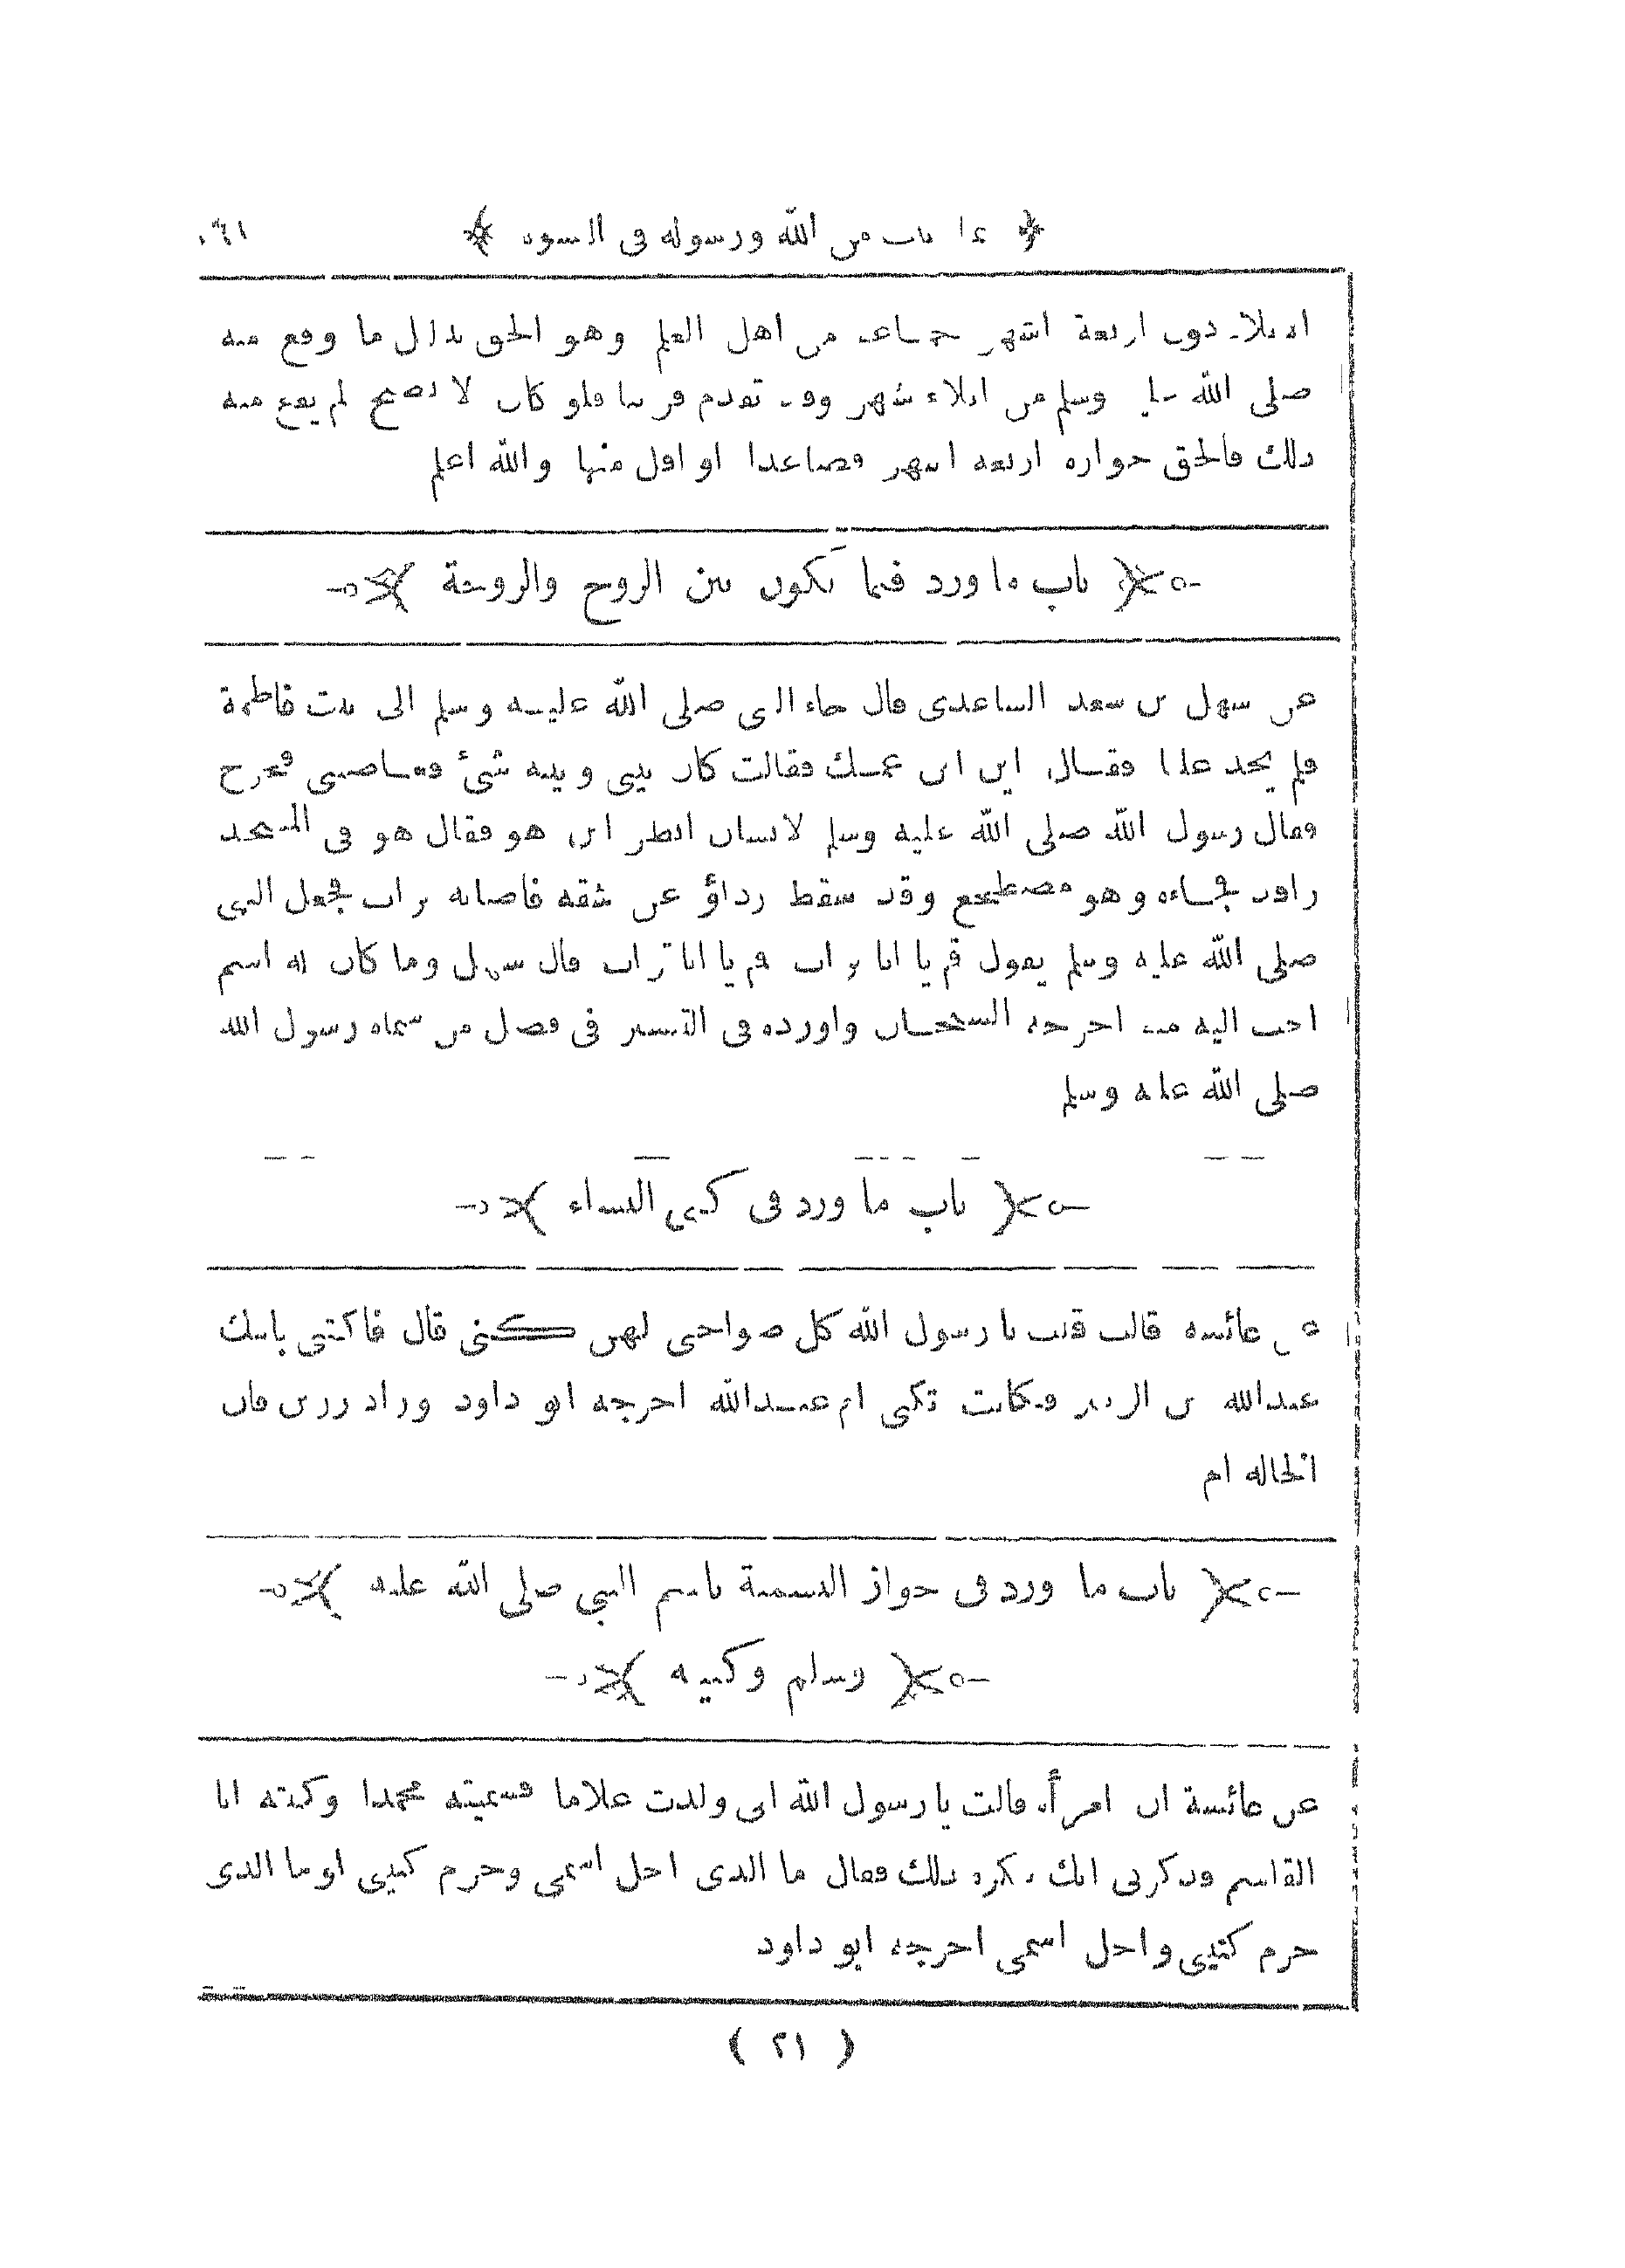 ﴿ ما ثبت من الله ورسوله فى النسوة ﴾ ١٦١
الايلاء دون اربعة اشهر جماعة من اهل العلم وهو الحق بدليل ما وقع منه
صلى الله عليه وسلم من ايلاء شهر وقد تقدم قريبا فلو كان لا يصح لم يقع منه
ذلك فالحق جوازه اربعة اشهر فصاعدا او اقل منها والله اعلم
﴿ باب ما ورد فيما يكون بين الزوج والزوجة ﴾
عن سهل بن سعد الساعدى قال جاء النبى صلى الله عليه وسلم الى بيت فاطمة
فلم يجد عليا فقال اين ابن عمك فقالت كان بينى وبينه شئ فغاضبنى فخرج
فقال رسول الله صلى الله عليه وسلم لانسان انظر اين هو فقال هو فى المسجد
راقد فجاءه وهو مضطجع وقد سقط رداؤ عن شقه فاصابه تراب فجعل النبى
صلى الله عليه وسلم يقول قم يا ابا تراب قم يا ابا تراب قال سهل وما كان له اسم
احب اليه منه اخرجه الشيخان واورده فى التيسير فى فصل من سماه رسول الله
صلى الله عليه وسلم
﴿ باب ما ورد فى كنى النساء ﴾
عن عائشة قالت قلت يا رسول الله كل صواحبى لهن كنى قال فاكتنى بابنك
عبدالله بن الزبير فكانت تكنى ام عبدالله اخرجه ابو داود وزاد رزين فان
الخالة ام
﴿ باب ما ورد فى جواز التسمية باسم النبي صلى الله عليه ﴾
﴿ وسلم وكنيته ﴾
عن عائشة ان امرأة قالت يا رسول الله انى ولدت غلاما فسميته محمدا وكنيته ابا
القاسم فذكر لى انك تكره ذلك فقال ما الذى احل اسمى وحرم كنيتى او ما الذى
حرم كنيتى واحل اسمى اخرجه ابو داود
( ٢١ )